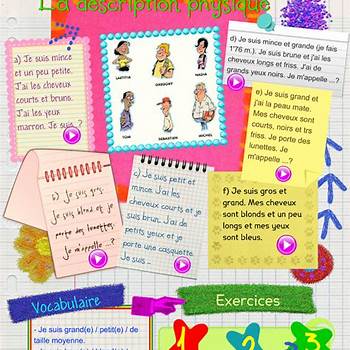 La description physique
a) Je suis mince
et un peu petite.
J'ai les cheveux
courts et bruns.
J'ai les yeux
marron. Je suis ..?
LAETITIA
GREGORY
NADIA
TOM
SEBASTIEN
MICHEL
d) Je suis mince et grande (je fais
1'76 m.). Je suis brune et j'ai les
cheveux longs et frisés. J'ai de
grands yeux noirs. Je m'appelle ...?
e) Je suis grand et
j'ai la peau mate.
Mes cheveux sont
courts, noirs et très
frisés. Je porte des
lunettes. Je
m'appelle ...?
b) Je suis gros.
Je suis blond et je
porte des lunettes.
Je m'appelle ...?
c) Je suis petit et
mince. J'ai les
cheveux courts et je
suis brun. J'ai de
petits yeux et je
porte une casquette.
Je suis...
f) Je suis gros et
grand. Mes cheveux
sont blonds et un peu
longs et mes yeux
sont bleus.
Vocabulaire
Exercices
- Je suis grand(e) / petit(e) / de
taille moyenne.
1 2 3